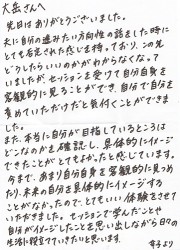 大岳さんへ
先日はありがとうございました。
夫に自分の進みたい方向性の話をした時に
とても否定された感じを持っており、この先
どうしたらいいのかがわからなくなって
いましたが、セッションを受けて自分自身を
客観的に見ることができ、自分で自分を
責めていただけだと気付くことができま
した。
また、本当に自分が目指しているところは
どこなのかを確認し、具体的にイメージ
できたことがとてもよかったと感じています。
今まで、あまり自分自身を客観的に見つめ
たり、未来の自分を具体的にイメージする
ことがなかったので、とてもいい体験をさせて
いただきました。セッションで学んだことや
自分がイメージできたことを思い出しながら日々の
生活に役立てていきたいと思います。
より